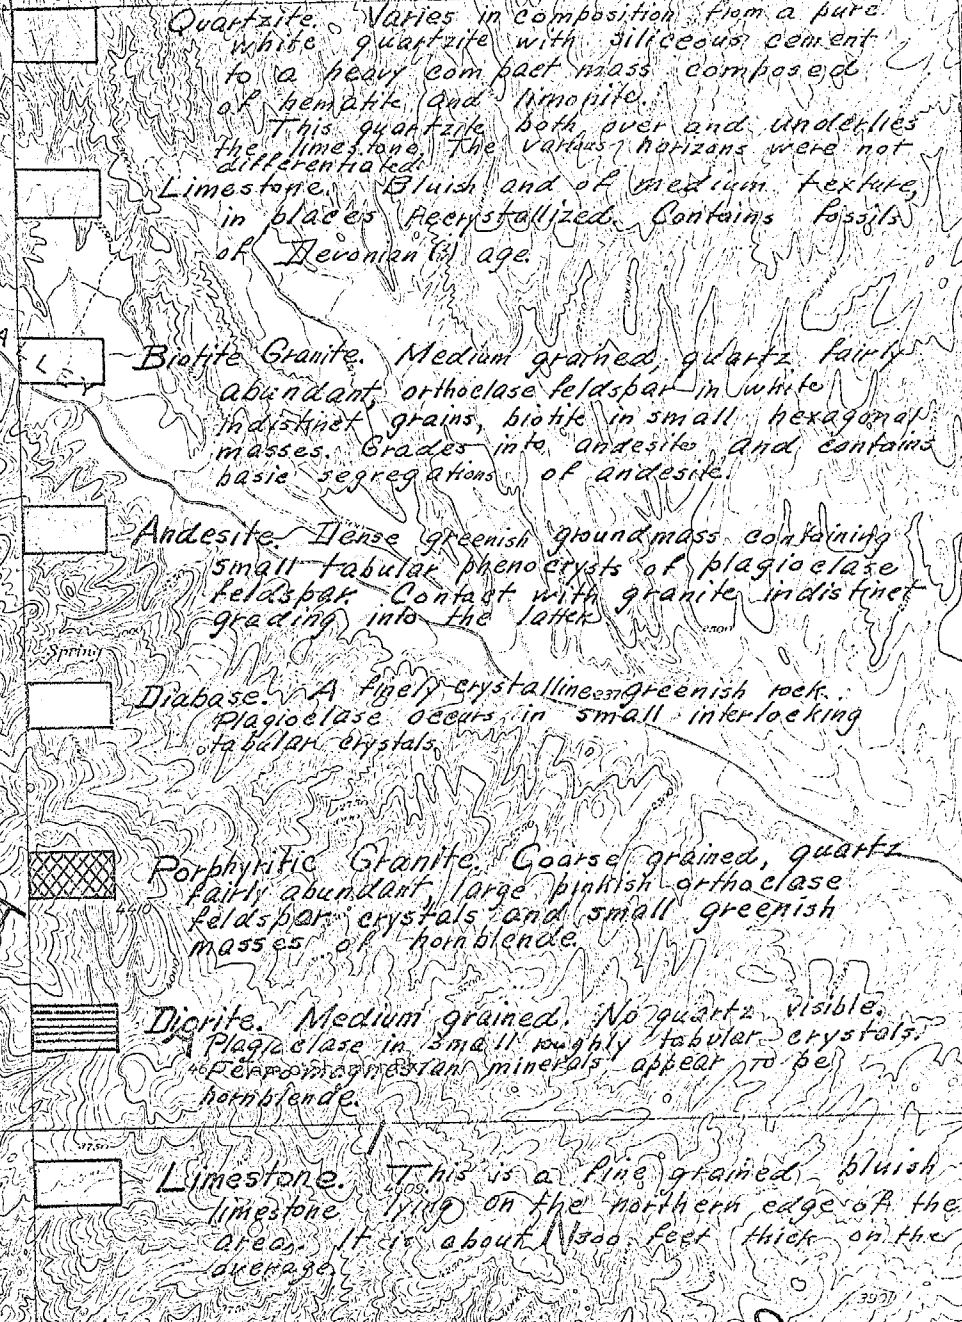 Quartzite. Varies in composition from a pure
white quartzite with siliceous cement
to a heavy compact mass composed
of hematite and limonite.
This quartzite both over and underlies
the limestone. The various horizons were not
differentiated.
Limestone. Bluish and of medium texture,
in places recrystallized. Contains fossils
of Devonian (?) age.
Biotite Granite. Medium grained, quartz fairly
abundant, orthoclase feldspar in white
indistinct grains, biotite in small hexagonal
masses. Grades into andesite and contains
basic segregations of andesite.
Andesite. Dense greenish groundmass containing
small tabular phenocrysts of plagioclase
feldspar. Contact with granite indistinct
grading into the latter.
Spring
Diabase. A finely crystalline greenish rock.
Plagioclase occurs in small interlocking
tabular crystals.
Porphyritic Granite. Coarse grained, quartz
fairly abundant, large pinkish orthoclase
4410
feldspar crystals and small greenish
masses of hornblende.
Diorite. Medium grained. No quartz visible.
Plagioclase in small roughly tabular crystals.
Ferromagnesian minerals appear to be
hornblende.
Limestone. This is a fine grained bluish
limestone lying on the northern edge of the
area. It is about 1300 feet thick on the
average.